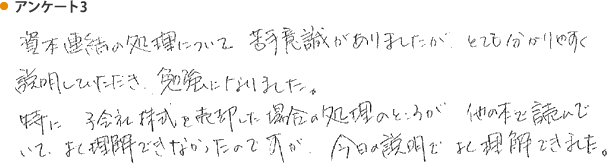 アンケート3
資本連結の処理について 苦手意識がありましたが、とても分かりやすく
説明していただき、勉強になりました。
特に 子会社株式を売却した場合の処理のところが 他の本で読んで
いて よく理解できなかったのですが、今日の説明で よく理解できました。